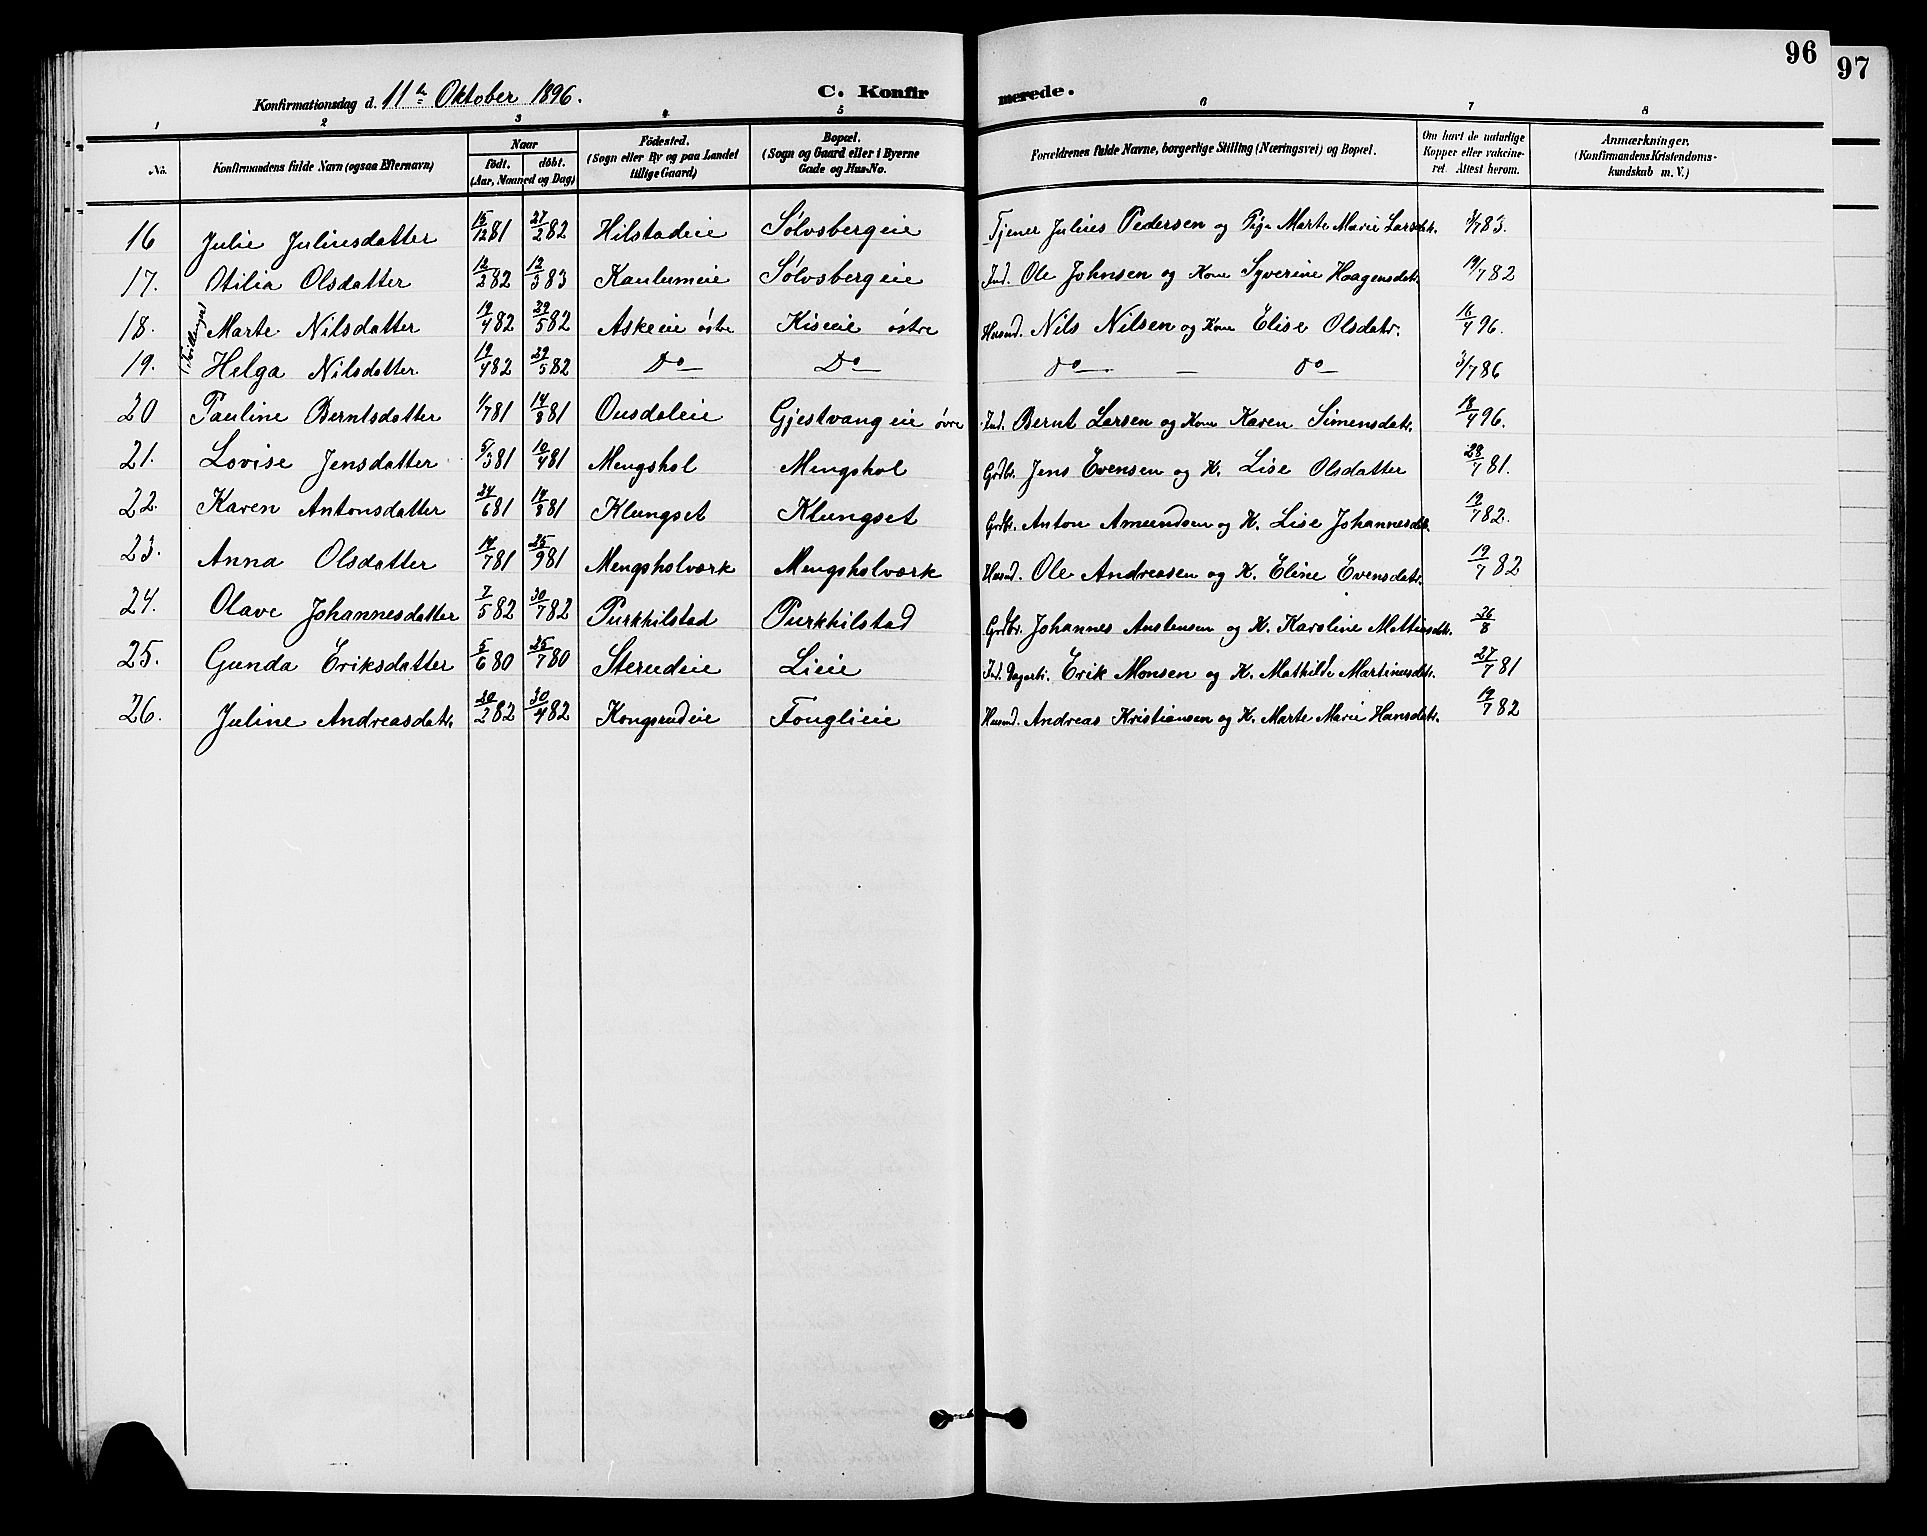 96
97
Konfirmationsdag d. 11te Oktober 1896.
C. Konfirmerede.
1 2 3 4 5 6 7 8
No. Konfirmandens fulde Navn (ogsaa Efternavn) Naar født. døbt. (Aar, Maaned og Dag) Fødested. (Sogn eller By og paa Landet tillige Gaard) Bopæl. (Sogn og Gaard eller i Byerne Gade og Hus-No.) Forældrenes fulde Navne, borgerlige Stilling (Næringsvei) og Bopæl. Om havt de naturlige Kopper eller vakcineret. Attest herom. Anmærkninger. (Konfirmandens Kristendomskundskab m. V.)
16 Julie Juliusdatter 15/12 81 27/2 82 Hilstadeie Sølvsbergeie Tjener Julius Pedersen og Pige Marte Marie Larsdtr. 3/7 83.
17. Otilia Olsdatter 12/2 82 12/3 83 Kaulumeie Sølvsbergeie Ind. Ole Johnsen og Kone Syverine Haagensdatr. 19/7 82
18. (Tvillinger) Marte Nilsdatter 19/4 82 29/5 82 Askeeie østre Kiseeie østre Husmd. Nils Nilsen og Kone Elise Olsdatr. 16/4 96.
19. Helga Nilsdatter 19/4 82 29/5 82 Do Do Do — Do 3/7 86
20 Pauline Berntsdatter 1/7 81 14/8 81 Ousdaleie Gjestvangeie øvre Ind. Bernt Larsen og Kone Karen Simensdatr. 18/4 96.
21. Lovise Jensdatter 5/3 81 10/4 81 Mengshol Mengshol Grdbr. Jens Evensen og K. Lise Olsdatter 28/7 81.
22. Karen Antonsdatter 24/6 81 14/8 81 Klungset Klungset Grdbr. Anton Amundsen og K. Lise Johannesdtr. 19/7 82.
23. Anna Olsdatter 14/7 81 25/9 81 Mengsholværk Mengsholværk Husmd. Ole Andreasen og K. Eline Evensdatr. 19/7 82
24. Olave Johannesdatter 7/5 82 30/7 82 Purkhilstad Purkhilstad Grdbr. Johannes Anstensen og K. Karoline Mattiasdtr. 26/8
25. Gunda Eriksdatter 5/6 80 25/7 80 Sterudeie Lieie Ind. Dagarb. Erik Monsen og K. Mathilde Martinusdtr. 27/7 81
26. Juline Andreasdatr. 20/2 82 30/4 82 Kongsrudeie Fouglieie Husmd. Andreas Kristiansen og K. Marte Marie Hansdatr. 19/7 82